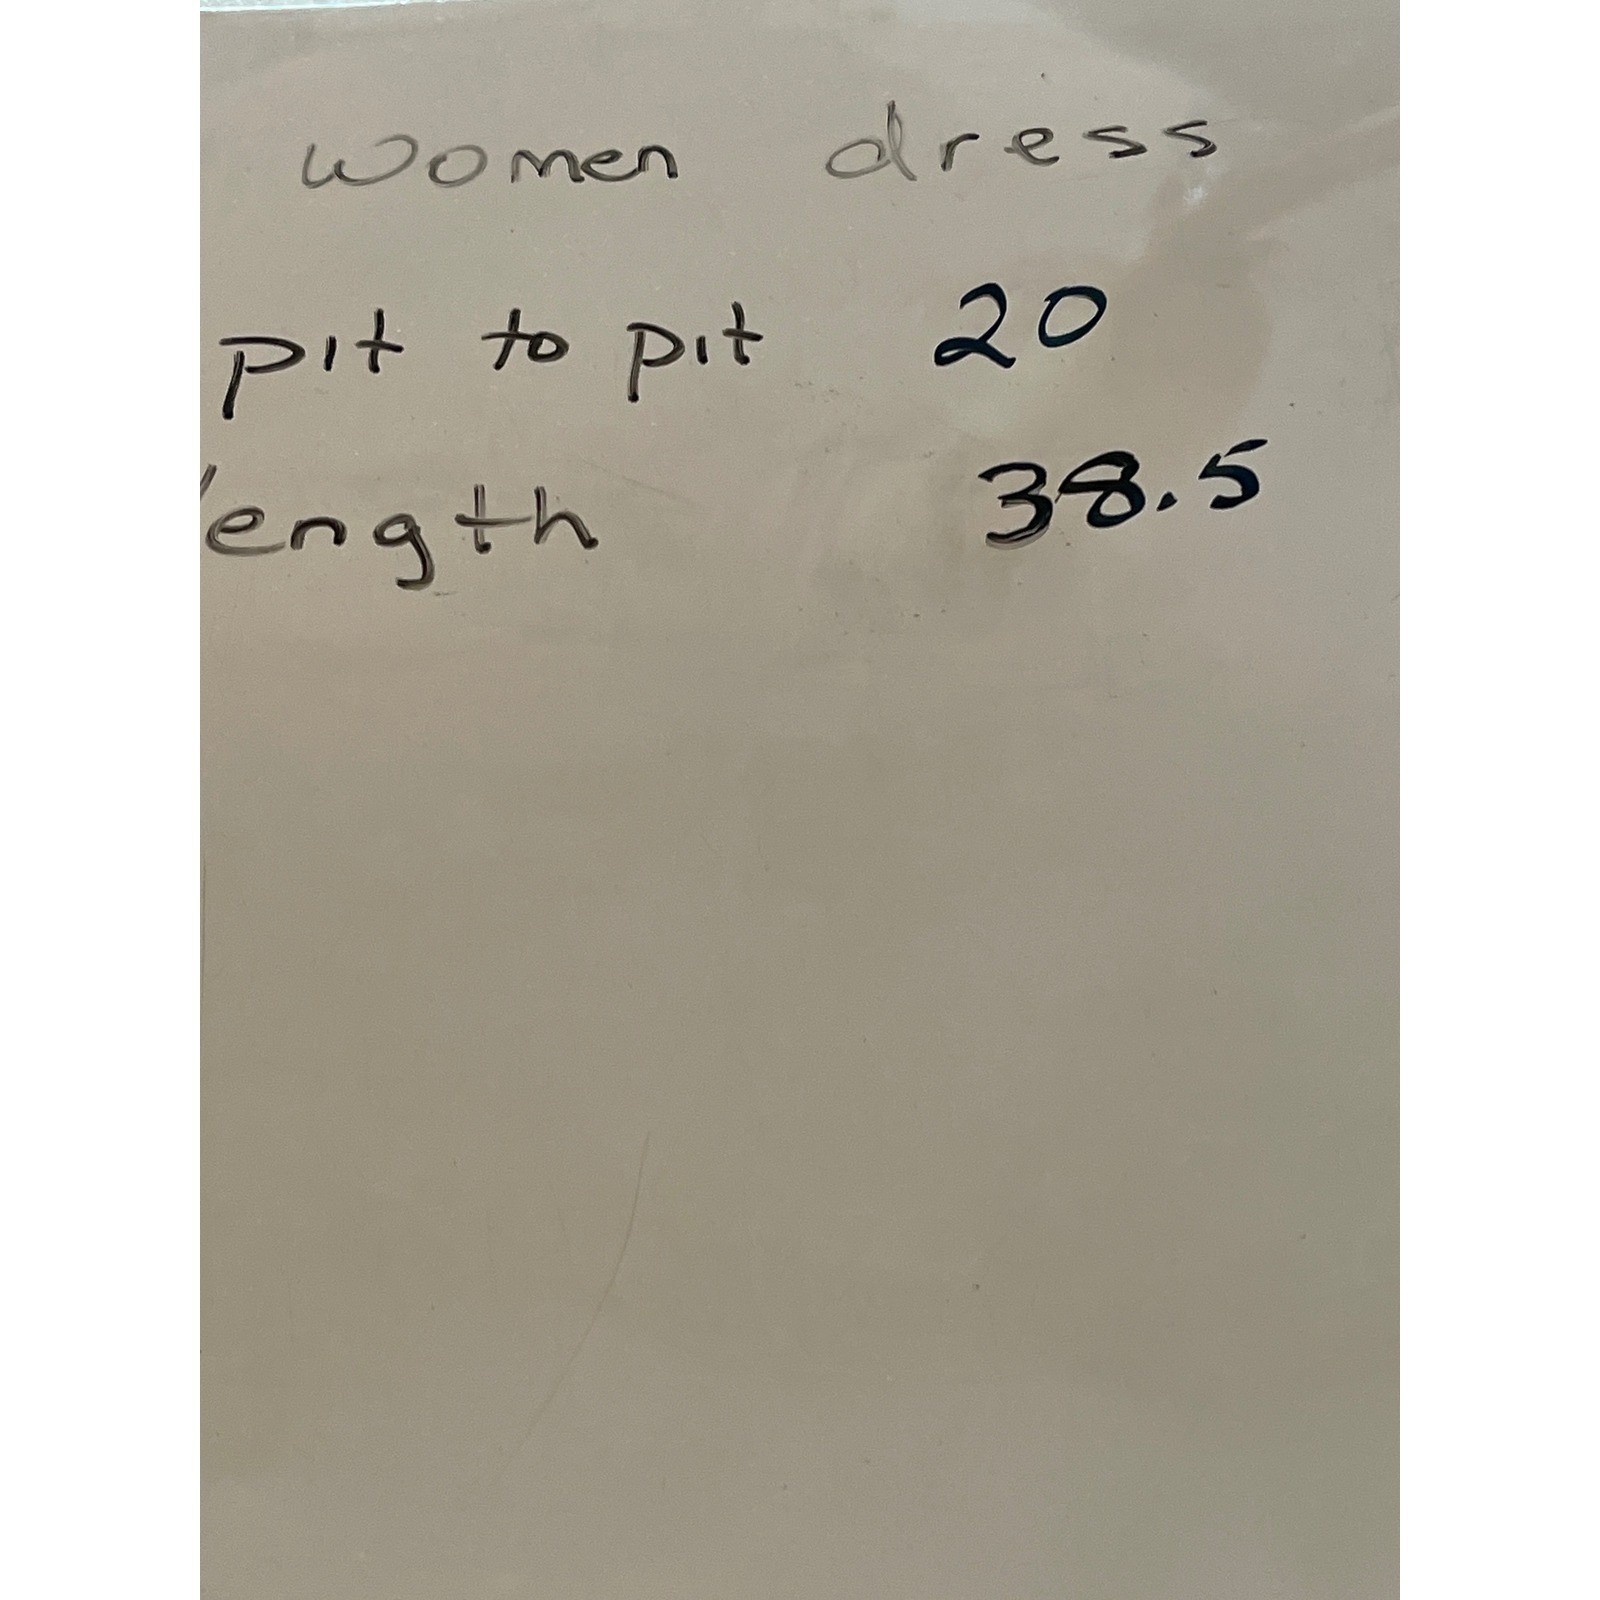 women dress
pit to pit 20
length 38.5